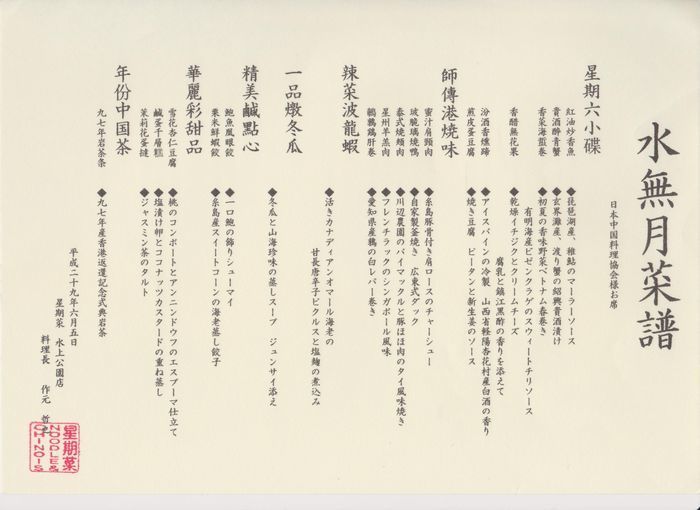 水無月菜譜
日本中国料理協会様お席
星期六小碟
紅油炒香魚 ◆琵琶湖産、稚鮎のマーラーソース
黄酒酔青蟹 ◆玄界灘産、渡り蟹の紹興黄酒漬け
香菜海蜇巻 ◆初夏の香味野菜ベトナム春巻き
有明海産ビゼンクラゲのスウィートチリソース
香醋無花果 ◆乾燥イチジクとクリームチーズ
腐乳と鎮江黒酢の香りを添えて
汾酒香燻蹄 ◆アイスバインの冷製 山西省軽陽杏花村産白酒の香り
煎皮蛋豆腐 ◆焼き豆腐 ピータンと新生姜のソース
師傳港焼味
蜜汁肩頸肉 ◆糸島豚骨付き肩ロースのチャーシュー
玻脆璃焼鴨 ◆自家製釜焼き 広東式ダック
泰式焼頬肉 ◆川辺農園のパイマックルと豚ほほ肉のタイ風味焼き
星州羊羔肉 ◆フレンチラックのシンガポール風味
鵪鶉鶏肝巻 ◆愛知県産鶉の白レバー巻き
辣菜波龍蝦
◆活きカナディアンオマール海老の
甘長唐辛子ピクルスと塩麹の煮込み
一品燉冬瓜
◆冬瓜と山海珍味の蒸しスープ ジュンサイ添え
精美鹹點心
鮑魚鳳眼餃 ◆一口鮑の飾りシューマイ
粟米鮮蝦餃 ◆糸島産スイートコーンの海老蒸し餃子
華麗彩甜品
雪花杏仁豆腐 ◆桃のコンポートとアンニンドウフのエスプーマ仕立て
鹹蛋千層糕 ◆塩漬け卵とココナッツカスタードの重ね蒸し
茉莉花蛋撻 ◆ジャスミン茶のタルト
年份中国茶
九七年岩茶条 ◆九七年産香港返還記念式典岩茶
平成二十九年六月五日
星期菜 水上公園店
料理長 作元 哲
星期菜
NOODLE&
CHINOIS